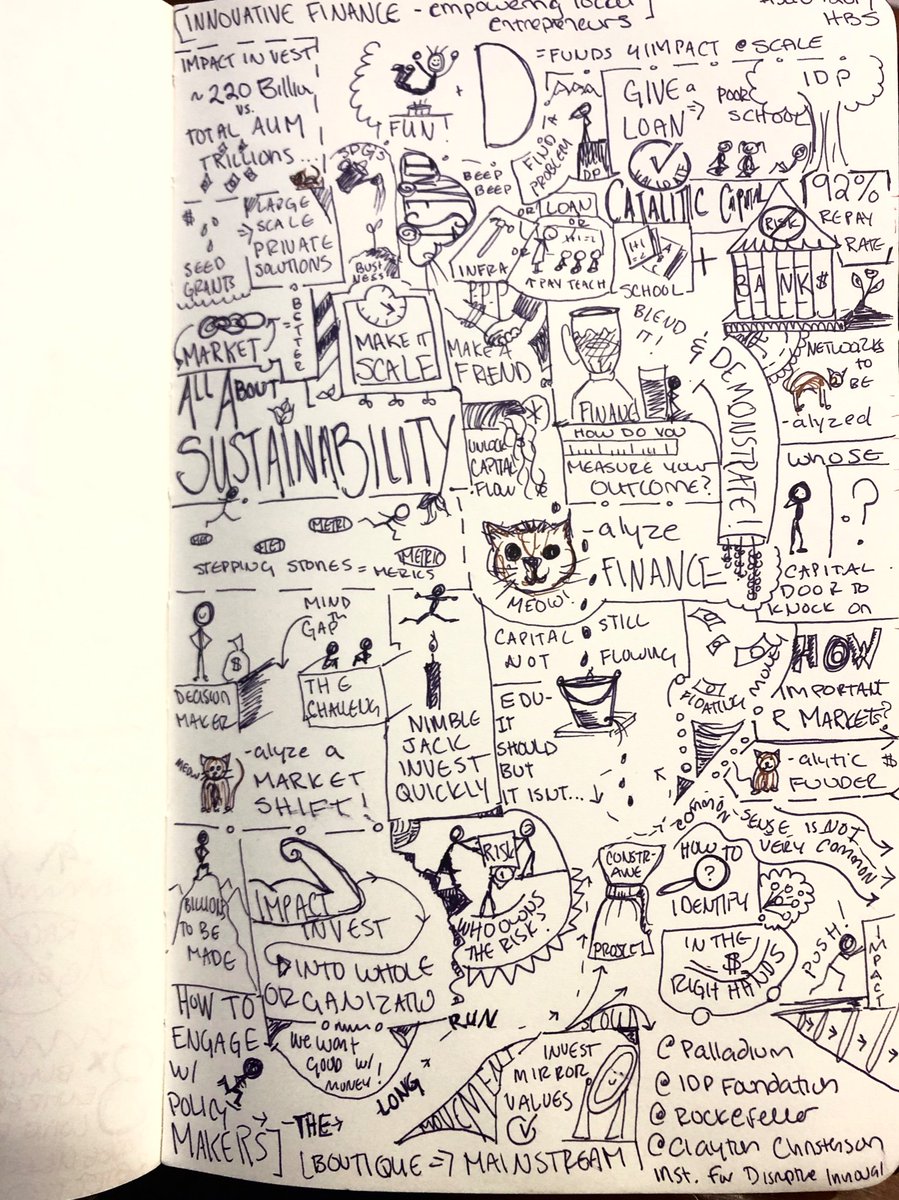 [INNOVATIVE FINANCE - empowering local]
entrepreneurs
HBS
IMPACT INVEST
~ 220 Billion
vs.
TOTAL AUM
TRILLIONS...
FUN!
+
D
= FUNDS 4 IMPACT @ SCALE
AAA
FIND A
PROBLEM
IDP
GIVE a
LOAN =>
POOR
SCHOOL
IDP
VALIDATE
CATALITIC CAPITAL
92%
REPAY
RATE
$
SEED
GRANTS
LARGE
=> SCALE
PRIVATE
SOLUTIONS
SDG'S
BUSINESS
BEEP
BEEP
INFRA
OR
LOAN
OR
1+1=2
↑ PAY TEACH
1+1
=2
A
C
SCHOOL
+
RISK
BANK $
MARKET
=
BETTER
MAKE IT
SCALE
PPP
MAKE A
FRIEND
BLEND
IT!
FINANC
& DEMONSTRATE!
NETWORKS
TO
BE
-alyzed
ALL ABOUT
SUSTAINABILITY
UNLOCK
CAPITAL
FLOW
HOW DO YOU
MEASURE YOUR
OUTCOME?
WHOSE
?
CAPITAL
DOOR TO
KNOCK ON
MET
MET
METRI
METRIC
STEPPING STONES = METRICS
MEOW!
-alyze
FINANCE
DECISION
MAKER
$
MIND
THE
GAP
THE
CHALLENG
NIMBLE
JACK
INVEST
QUICKLY
CAPITAL
NOT
STILL
FLOWING
EDU-
IT
SHOULD
BUT
IT ISNT... ↓
FLOATING
MONEY
HOW
IMPORTANT
R MARKETS?
MEOW
-alyze a
MARKET
SHIFT!
-alytic $
FUNDER
COMMON SENSE IS NOT
VERY COMMON
BILLIONS
TO BE
MADE
IMPACT
INVEST
INTO WHOLE
ORGANIZATIO
RISK
WHO OWNS
THE RISK?
CONSTR-
AINE
PROBLEM
HOW TO
?
IDENTIFY
IN THE
$
RIGHT HANDS
PUSH!
IMPACT
HOW TO
ENGAGE
W/
POLICY
MAKERS]
We want
GOOD W/
MONEY!
-THE→
LONG
RUN
SLOW
MOVEMENT
INVEST
MIRROR
VALUES
[BOUTIQUE => MAINSTREAM
@Palladium
@IDP Foundation
@Rockefeller
@Clayton Christenson
Inst. For Disruptive Innovat